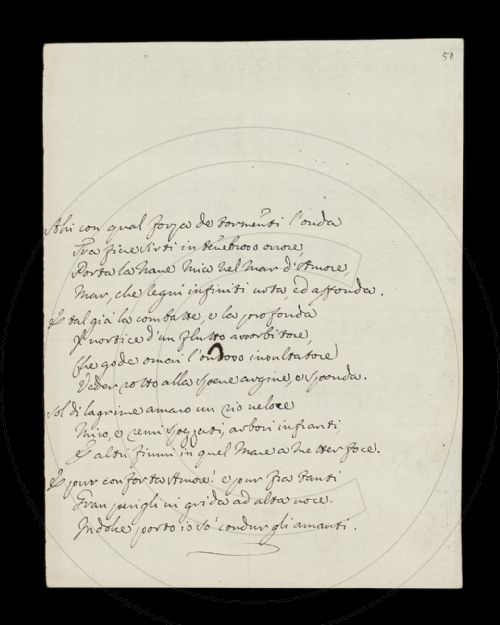 51
Ahi con qual forza de tormenti l'onda
Fra fiere sirti in tenebroso orrore
Porta la Nave mia nel mar d'Amore,
Mar, che legni infiniti urta, ed affonda.
E tal già la combatte, e la profonda
Vortice d'un flutto assorbitore
Che gode omai l'ondoso insultatore
Veder rotto alla spene argine, e sponda.
Sol di lagrime amaro un rio veloce
Miro, e remi spezzati, arbori infranti
E altri fiumi in quel Mare a metter foce.
E pur conforta Amore! e pur fra tanti
Gran perigli ei grida ad alta voce.
In dolce porto io so condur gli amanti.